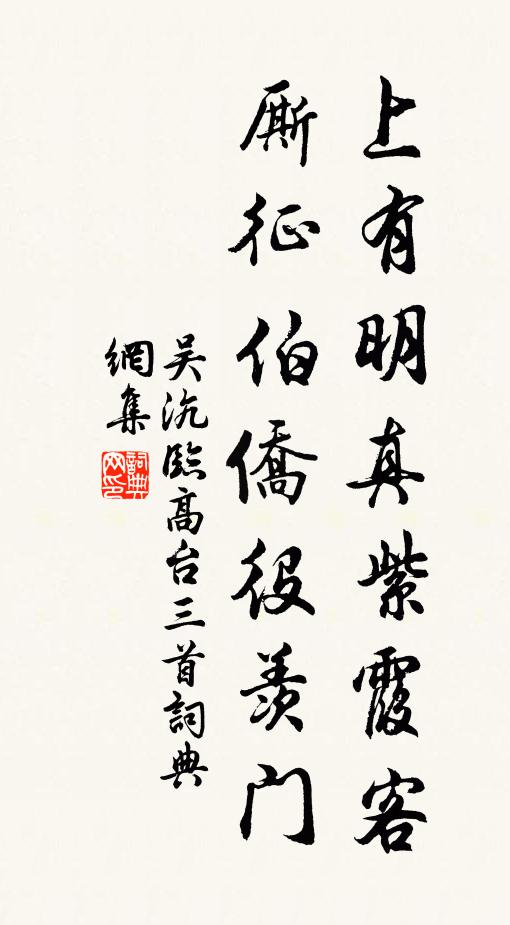 上有明真紫霞客
厮征伯僑役羨門
吴沆臨高台三首詞典
網集
詞典網印